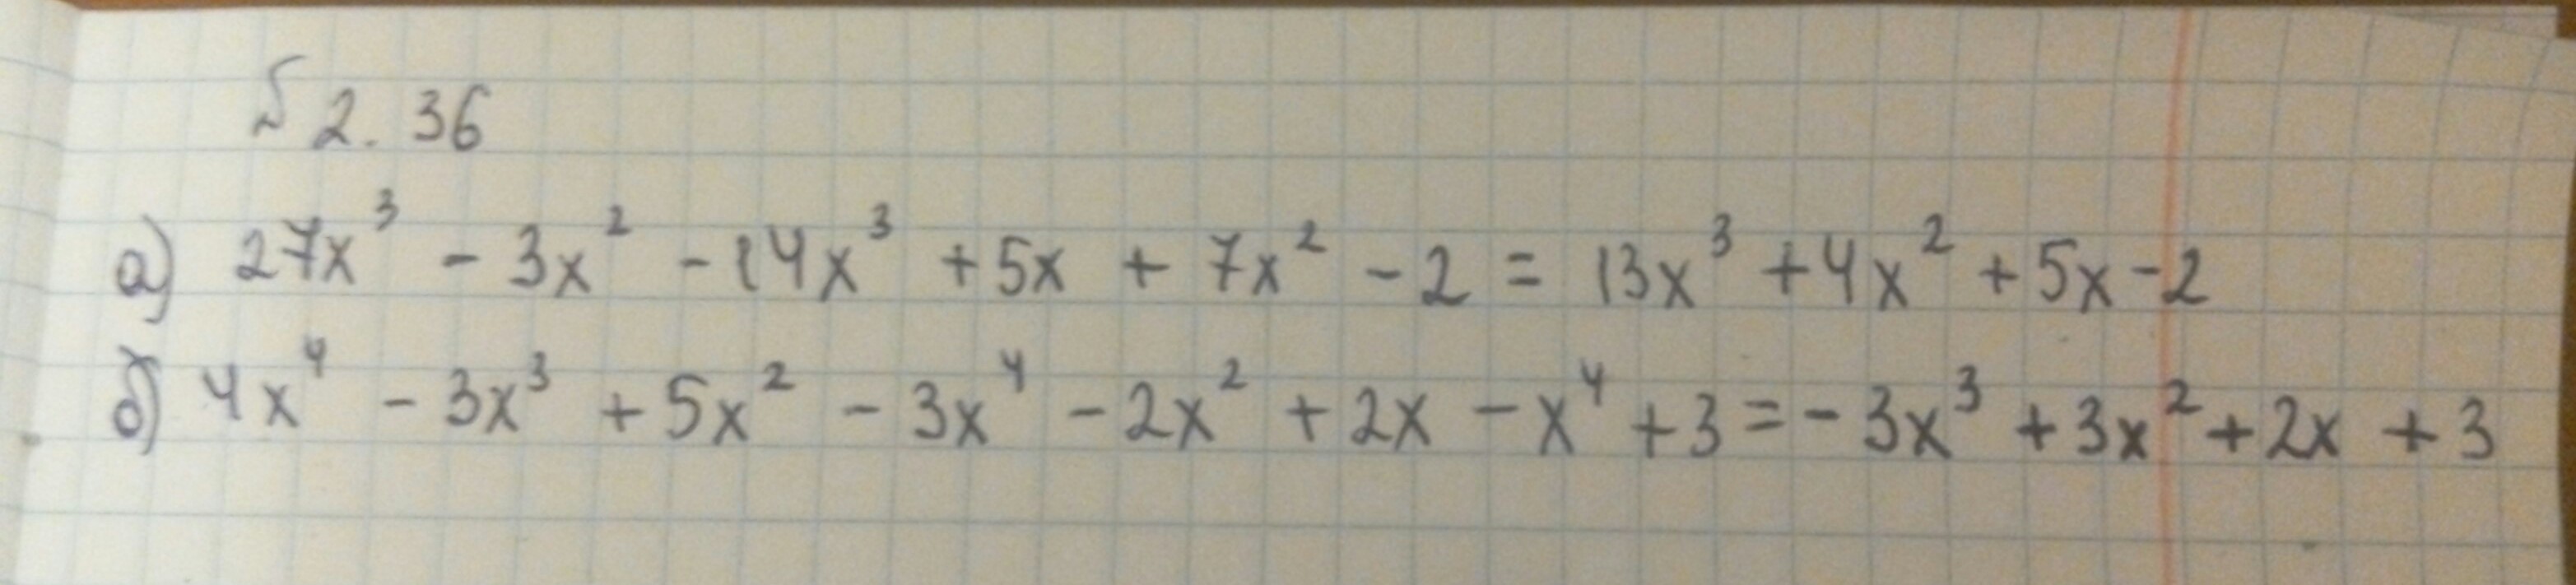 № 2.36
а) 27x³ - 3x² - 14x³ + 5x + 7x² - 2 = 13x³ + 4x² + 5x - 2
б) 4x⁴ - 3x³ + 5x² - 3x⁴ - 2x² + 2x - x⁴ + 3 = - 3x³ + 3x² + 2x + 3